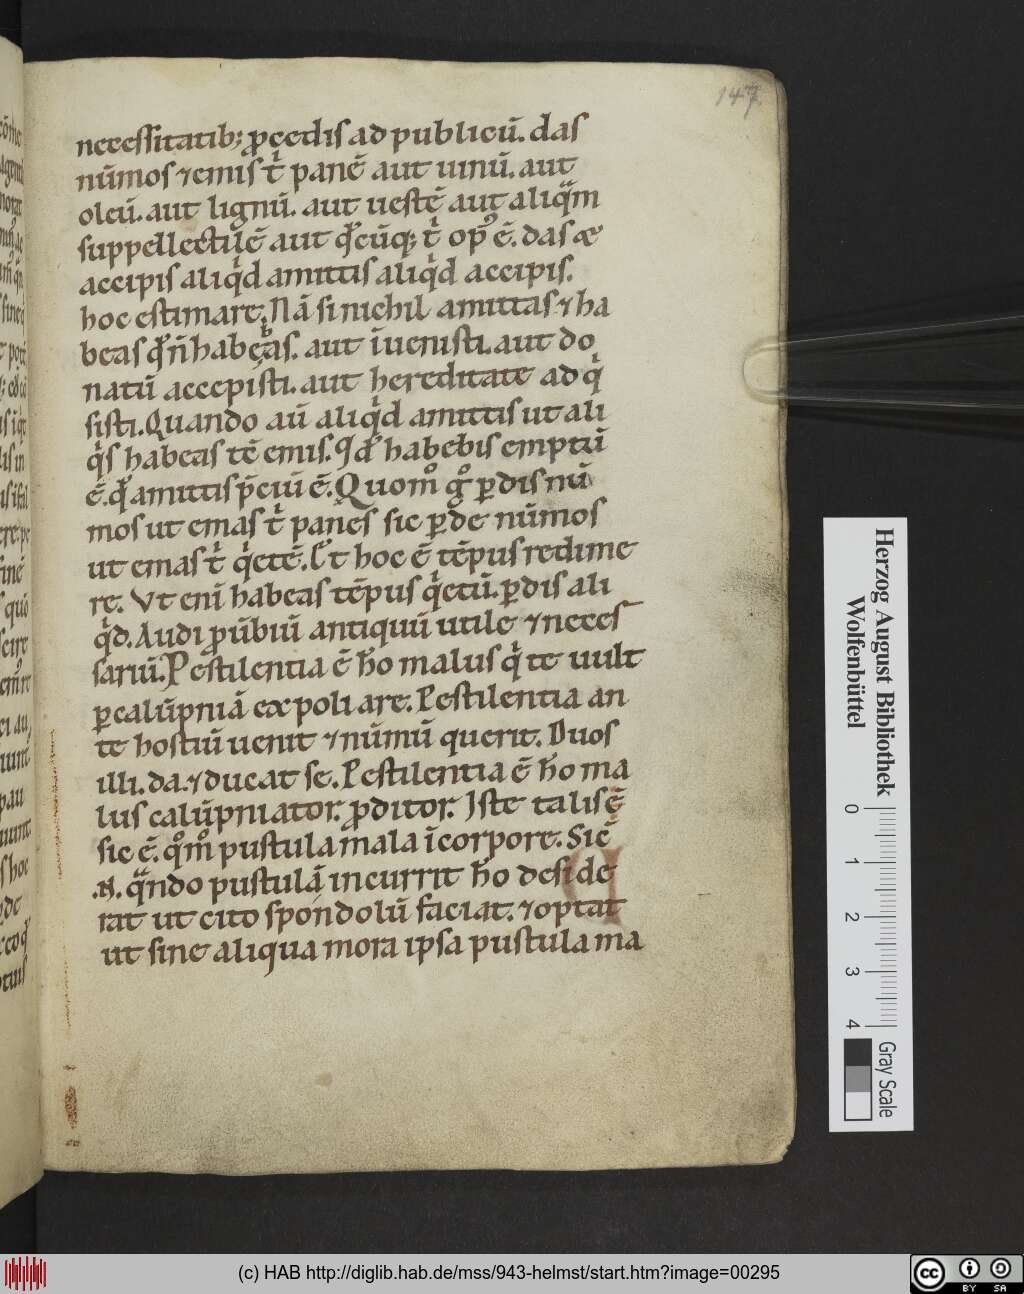 147
necessitatib; ꝓcedis ad publicū. das
nūmos ⁊ emis t̾ panē aut uinū. aut
oleū. aut lignū. aut uestē aut aliqͣm
suppellectilē aut qͥcūq; t̾ opꝰ ē. das ⁊
accipis aliqͥd amittis aliqͥd accipis.
hoc estimare. Nā si nichil amittas ⁊ ha
beas qͥ n̄ habeas. aut īuenisti. aut do
natū accepisti. aut hereditate adqͥ
sisti. Quando aū aliqͥd amittis ut ali
qͥs habeas tē emis. Qd̾ habebis emptū
ē. qd̾ amittis p̄ciū ē. Quomͦ gͦ ꝑdis nū
mos ut emas t̾ panes sic ꝑde nūmos
ut emas t̾ qͥetē. Et hoc ē tēpus redime
re. Vt enī habeas tēpus qͥetū. ꝑdis ali
qͥd. Audi ꝓūbiū antiquū utile ⁊ neces
sariū. Pestilentia ē hō malus qͥ te uult
ꝑ calūpniā expoliare. Pestilentia an
te hostiū uenit ⁊ nūmū querit. Duos
illi. da. ⁊ ducat se. Pestilentia ē hō ma
lus calūpniator. ꝓditor. Iste talis ē
sic ē. qͦmͦ pustula mala ī corpore. Sic
.N. qͣndo pustulā incurrit hō deside
rat ut cito spondolū faciat. ⁊ optat
ut sine aliqua mora ipsa pustula ma
Herzog August Bibliothek
Wolfenbüttel
0 1 2 3 4
Gray Scale
(c) HAB http://diglib.hab.de/mss/943-helmst/start.htm?image=00295
cc BY SA